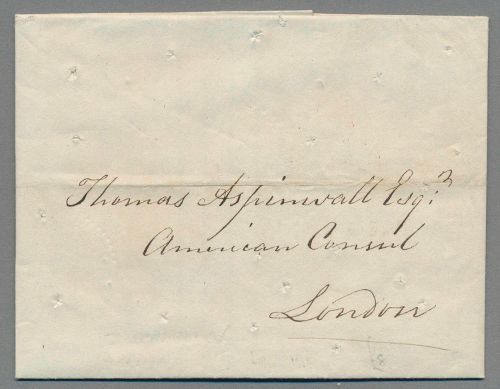 Thomas Aspinwall Esqr
American Consul
London